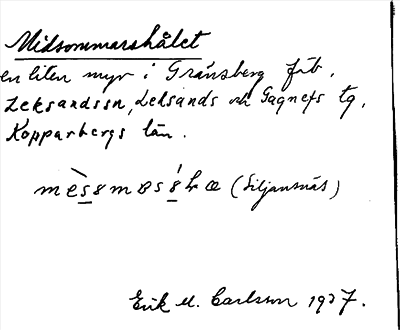 Midsommarshålet
en liten myr i Gränsberg fäb.
Leksandssn, Leksands och Gagnefs tg,
Kopparbergs län.
(Siljansnäs)
Erik M. Carlsson 1937.